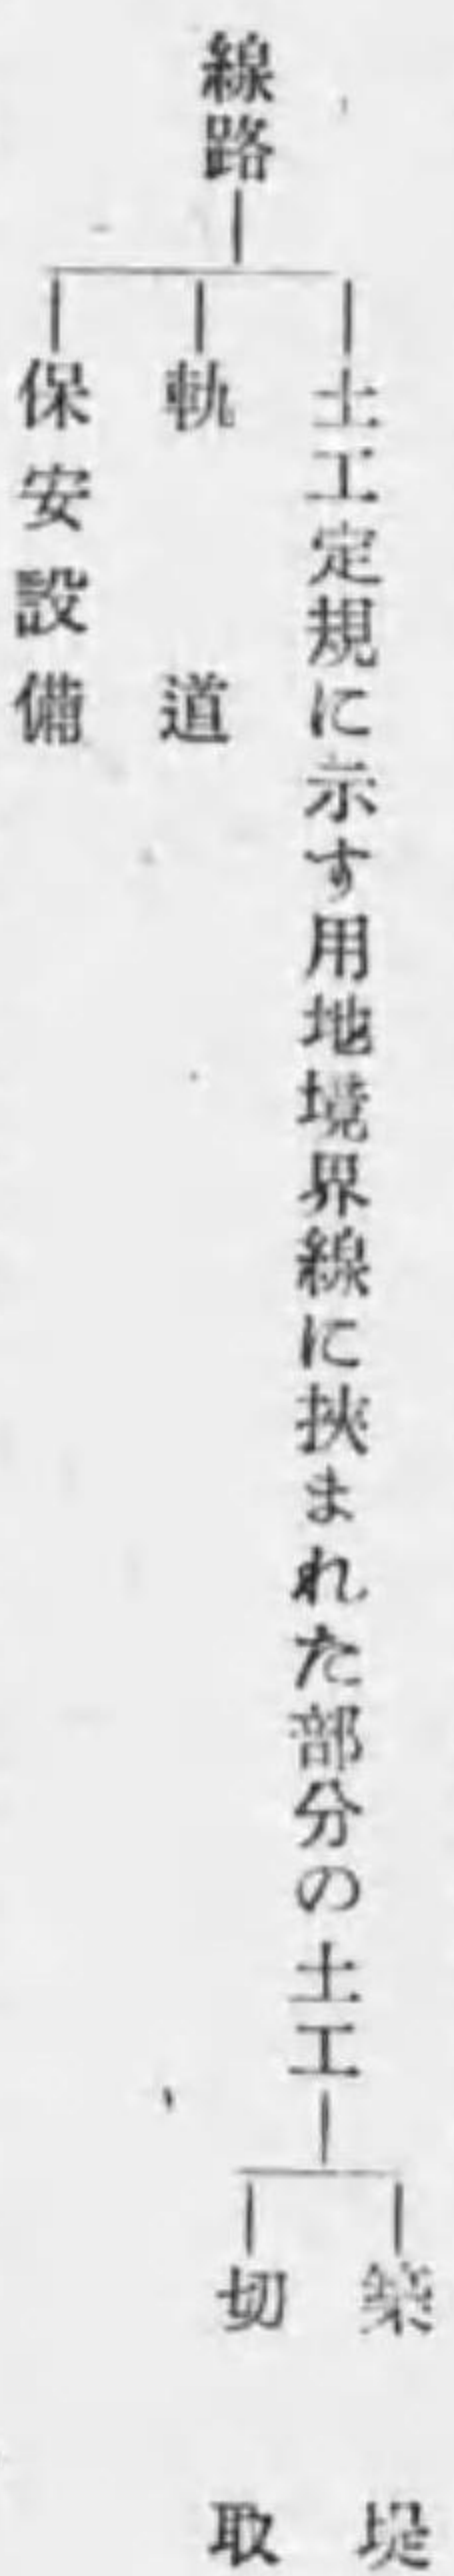 線路
土工定規に示す用地境界線に挾まれた部分の土工
築堤
切取
軌道
保安設備